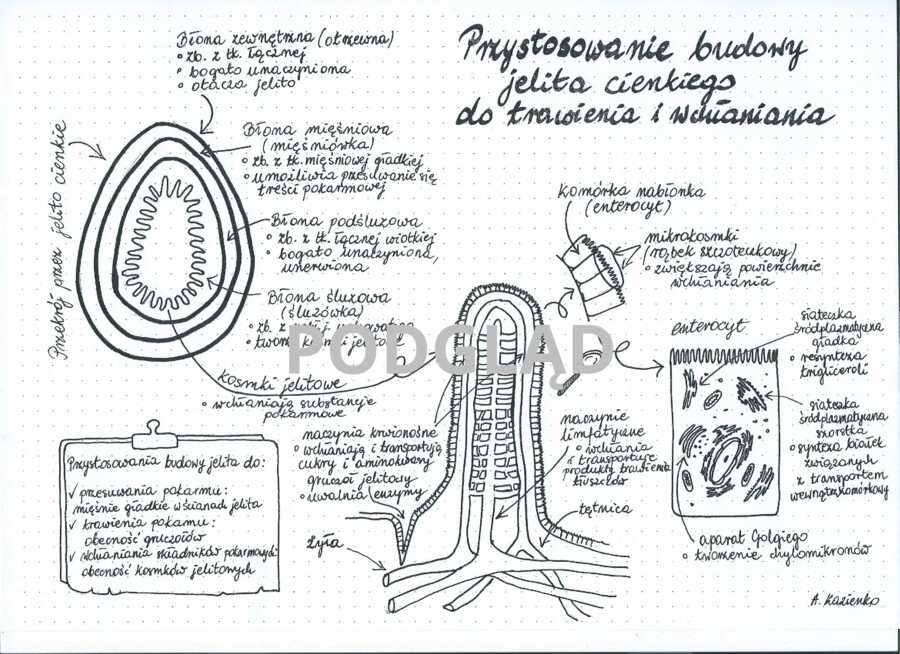 Przystosowanie budowy
jelita cienkiego
do trawienia i wchłaniania
Błona zewnętrzna (otrzewna)
• zb. z tk. łącznej
• bogato unaczyniona
• otacza jelito
Przekrój przez jelito cienkie
Błona mięśniowa
(mięśniówka)
• zb. z tk. mięśniowej gładkiej
• umożliwia przesuwanie się
treści pokarmowej
Błona podśluzowa
• zb. z tk. łącznej wiotkiej
• bogato unaczyniona,
unerwiona
Błona śluzowa
(śluzówka)
• zb. z
• tworzy kosmki jelitowe
PODGLĄD
kosmki jelitowe
• wchłaniają substancje
pokarmowe
Przystosowania budowy jelita do:
✓ przesuwania pokarmu:
mięśnie gładkie w ścianach jelita
✓ trawienia pokamu:
obecność gruczołów
✓ wchłaniania składników pokarmowych:
obecność kosmków jelitowych
naczynia krwionośne
• wchłaniają i transportują
cukry i aminokwasy
gruczoł jelitowy
• uwalnia enzymy
żyła
naczynie
limfatyczne
• wchłania
i transportuje
produkty trawienia
tłuszczów
tętnica
komórka nabłonka
(enterocyt)
mikrokosmki
(rąbek szczoteczkowy)
• zwiększają powierzchnię
wchłaniania
enterocyt
siateczka
śródplazmatyczna
gładka
• resynteza
trigliceroli
siateczka
śródplazmatyczna
szorstka
• synteza białek
związanych
z transportem
wewnątrzkomórkowy
aparat Golgiego
• tworzenie chylomikronów
A. Kazienko